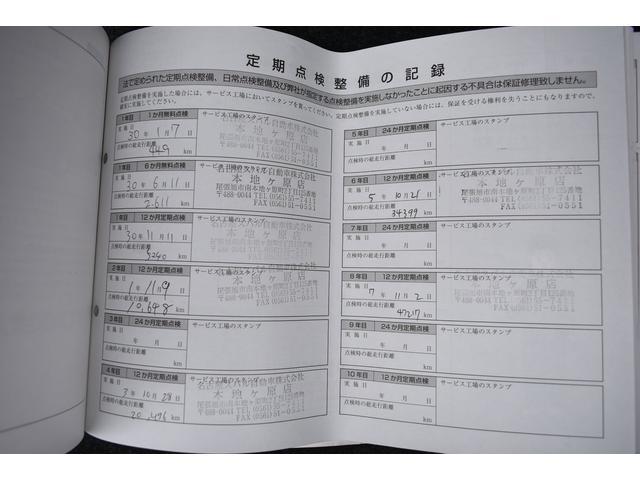 定期点検整備の記録
法で定められた定期点検整備、日常点検整備及び弊社が指定する点検整備を実施しなかったことに起因する不具合は保証修理致しません。
定期点検整備を実施した場合には、サービス工場においてスタンプを貰ってください。定期点検整備を実施していない場合には、保証を受ける権利を失うことにもなりますので、
実施してください。
1年目 1か月無料点検 サービス工場のスタンプ
実施日
30年1月7日
点検時の総走行距離
449 km
自動車株式会社
本地ヶ原店
尾張旭市南本地ヶ原町2丁目125番地
〒488-0044 TEL(0561)55-7411
FAX(0561)51-0551
1年目 6か月無料点検 サービス工場のスタンプ
実施日
30年6月11日
点検時の総走行距離
2,611 km
自動車株式会社
本地ヶ原店
尾張旭市南本地ヶ原町2丁目125番地
〒488-0044 TEL(0561)55-7411
FAX(0561)51-0551
1年目 12か月定期点検 サービス工場のスタンプ
実施日
30年11月11日
点検時の総走行距離
5240 km
名古屋スバル自動車株式会社
本地ヶ原店
尾張旭市南本地ヶ原町2丁目125番地
〒488-0044 TEL(0561)55-7411
FAX(0561)51-0551
2年目 12か月定期点検 サービス工場のスタンプ
実施日
1年11月9日
点検時の総走行距離
10,648 km
本地ヶ原店
3年目 24か月定期点検 サービス工場のスタンプ
実施日
年 月 日
点検時の総走行距離
km
4年目 12か月定期点検 サービス工場のスタンプ
実施日
3年10月28日
点検時の総走行距離
20,496 km
名古屋スバル自動車株式会社
本地ヶ原店
尾張旭市南本地ヶ原町2丁目125番地
〒488-0044 TEL(0561)55-7411
FAX(0561)51-0551
5年目 24か月定期点検 サービス工場のスタンプ
実施日
年 月 日
点検時の総走行距離
km
6年目 12か月定期点検 サービス工場のスタンプ
実施日
5年10月21日
点検時の総走行距離
34399 km
自動車株式会社
本地ヶ原店
尾張旭市南本地ヶ原町2丁目125番地
〒488-0044 TEL(0561)55-7411
FAX(0561)51-0551
7年目 24か月定期点検 サービス工場のスタンプ
実施日
年 月 日
点検時の総走行距離
km
8年目 12か月定期点検 サービス工場のスタンプ
実施日
7年11月2日
点検時の総走行距離
47217 km
本地ヶ原店
〒488-0044
9年目 24か月定期点検 サービス工場のスタンプ
実施日
年 月 日
点検時の総走行距離
km
10年目 12か月定期点検 サービス工場のスタンプ
実施日
年 月 日
点検時の総走行距離
km